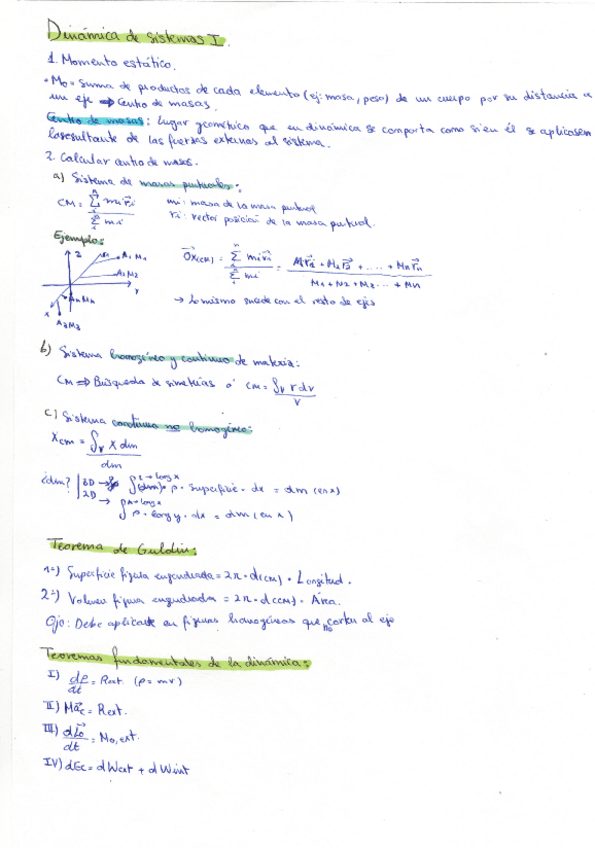 Dinámica de sistemas I.
1. Momento estático.
• Mo = Suma de productos de cada elemento (ej: masa, peso) de un cuerpo por su distancia a
un eje ⇒ Centro de masas.
Centro de masas: Lugar geométrico que en dinámica se comporta como si en él se aplicasen
la resultante de las fuerzas externas al sistema.
2. Calcular centro de masas.
a) Sistema de masas puntuales:
CM = Σ mi r⃗i / Σ mi
mi: masa de la masa puntual
ri: vector posición de la masa puntual.
Ejemplo:
z A1 M1
A2 M2
y
An Mn
x
A3 M3
Ox(CM) = Σ mi r⃗i / Σ mi = M1 r⃗1 + M2 r⃗2 + .... + Mn r⃗n / M1 + M2 + M3 ... + Mn
→ Lo mismo sucede con el resto de ejes
b) Sistema homogéneo y continuo de materia:
CM ⇒ Búsqueda de simetrías ó CM = ∫v r dv / V
c) Sistema continuo no homogéneo:
Xcm = ∫v x dm / dm
¿dm? 3D → ∫ ρ · superficie · dx = dm (en x)
2D → ∫ ρ · long y · dx = dm (en x)
Teorema de Guldin:
1º) Superficie figura engendrada = 2π · d(CM) · Longitud.
2º) Volumen figura engendrada = 2π · d(CM) · Área.
Ojo: Debe aplicarse en figuras homogéneas que no cortan al eje
Teoremas fundamentales de la dinámica:
I) dp/dt = Rext. (p = mv)
II) Ma⃗c = Rext.
III) dL⃗o/dt = Mo,ext.
IV) dEc = dWext + dWint